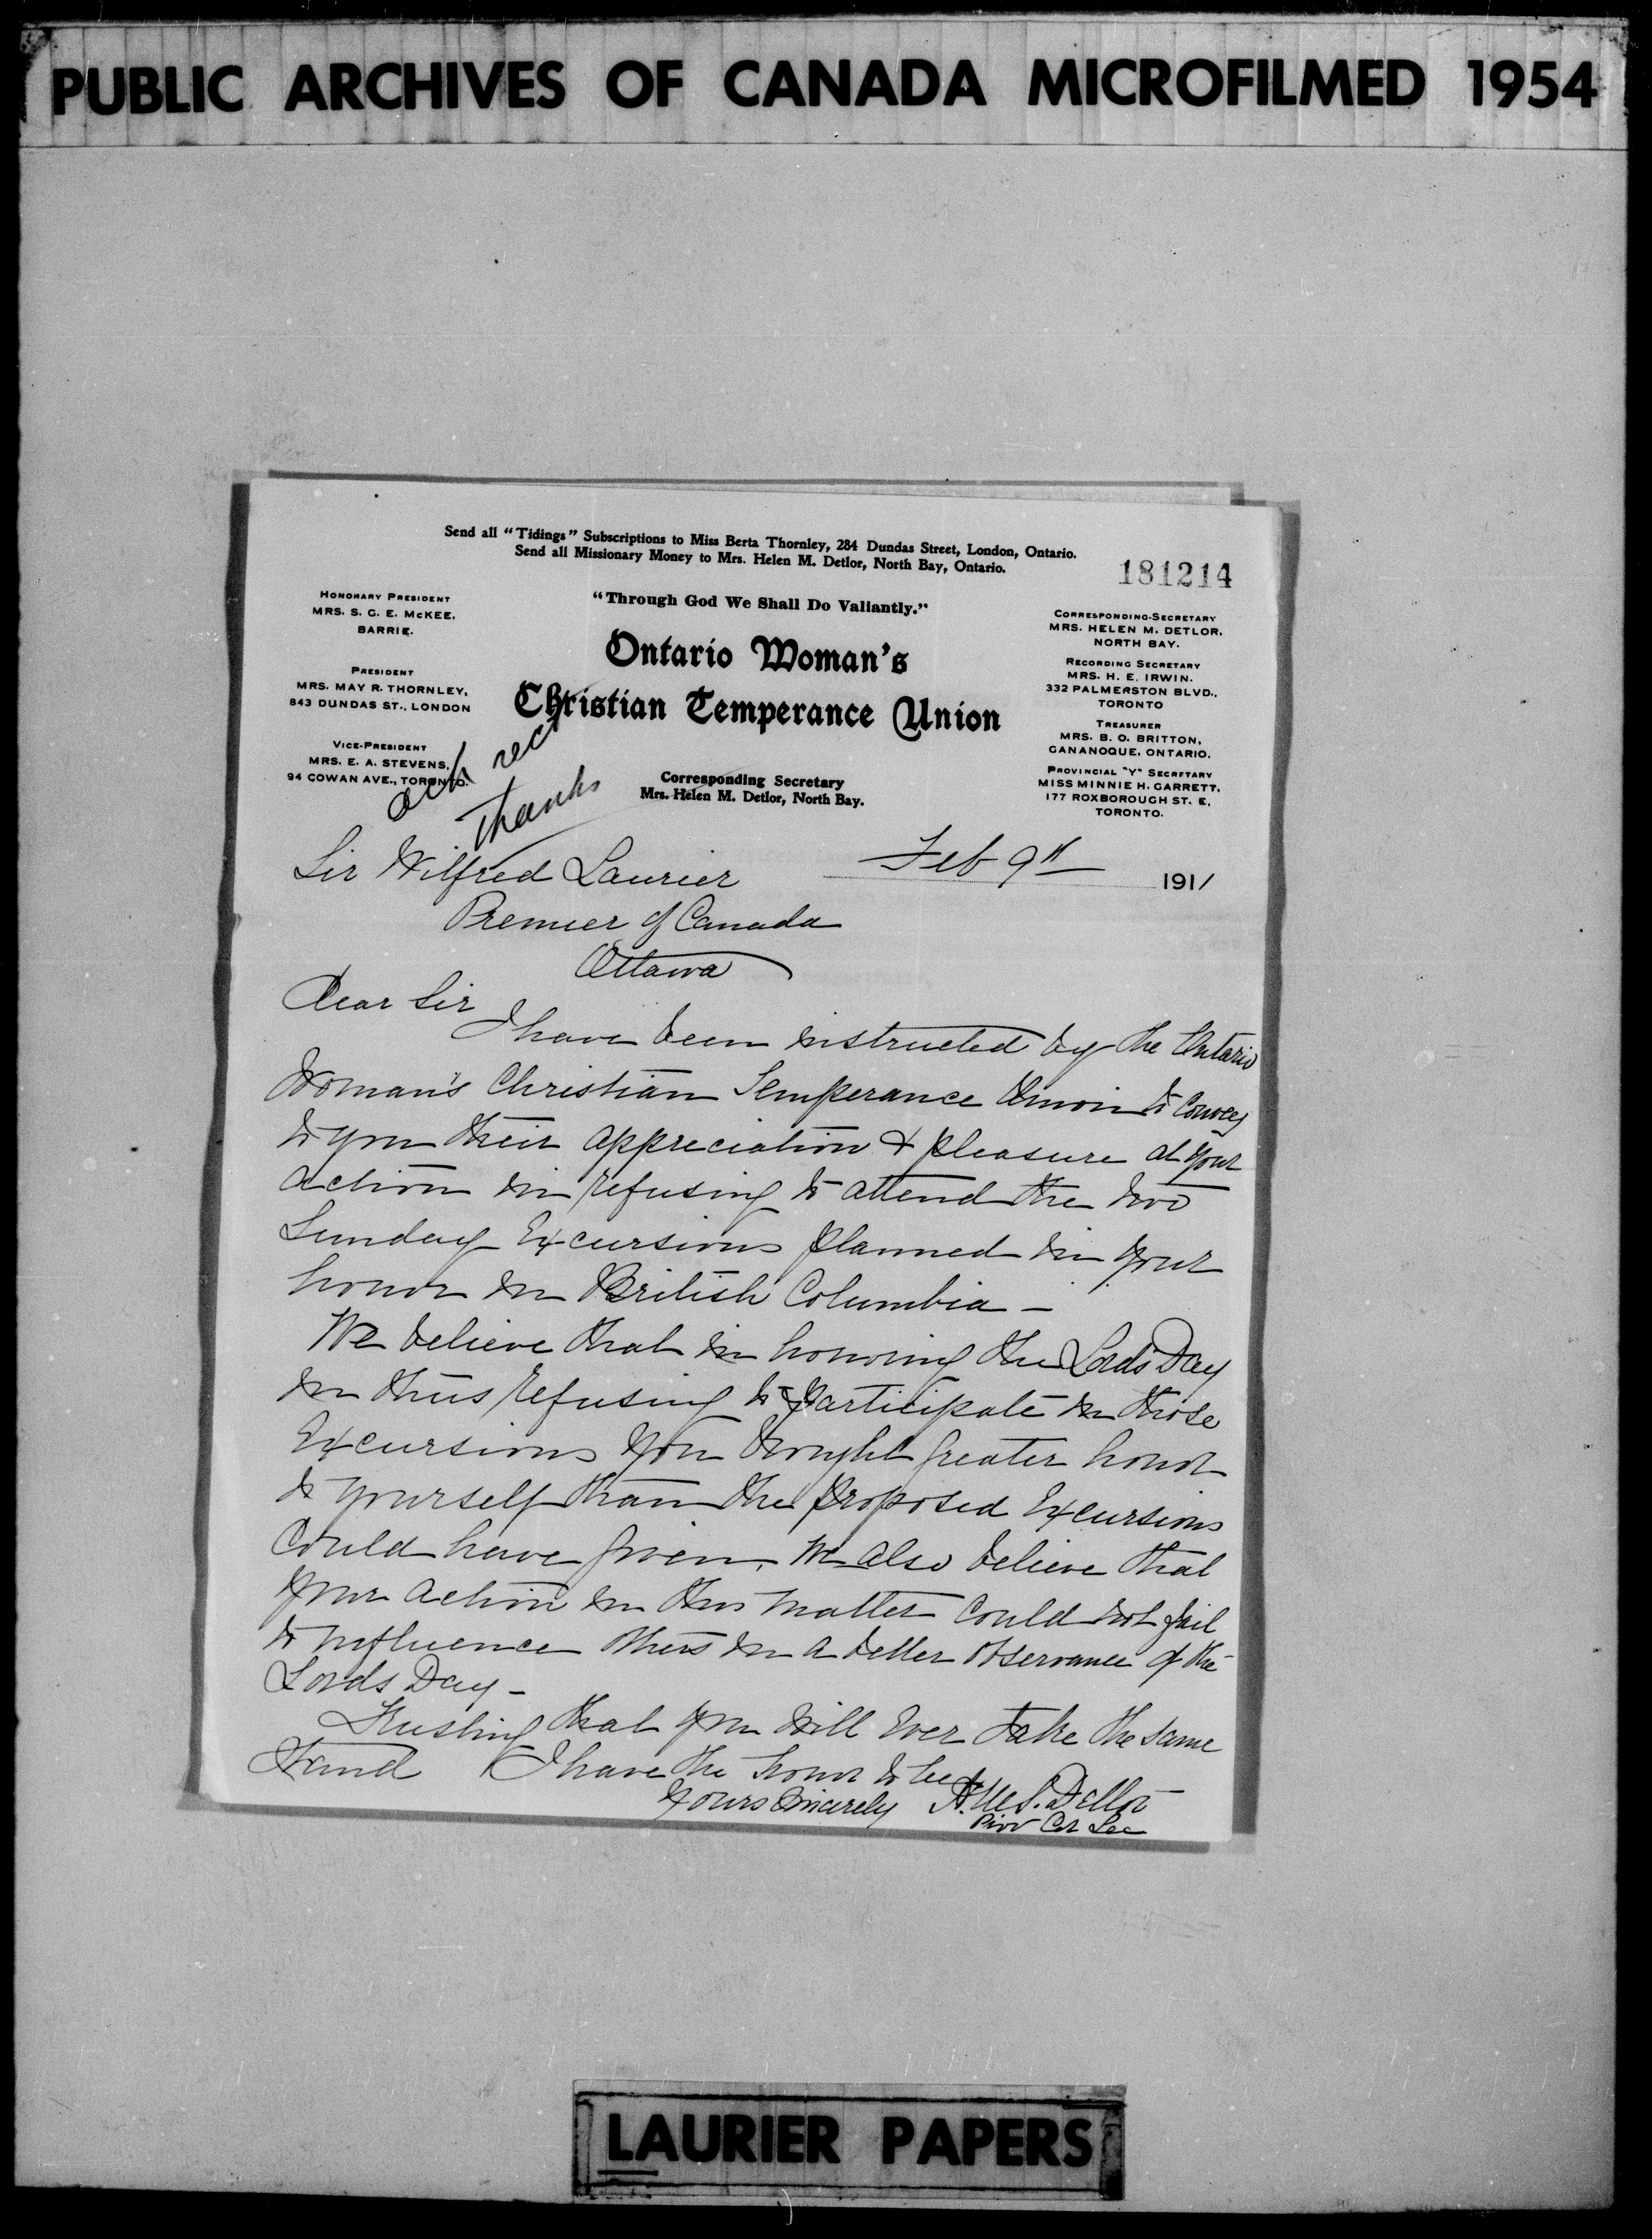 PUBLIC ARCHIVES OF CANADA MICROFILMED 1954
Send all "Tidings" Subscriptions to Miss Berta Thornley, 284 Dundas Street, London, Ontario.
Send all Missionary Money to Mrs. Helen M. Detlor, North Bay, Ontario.
181214
"Through God We Shall Do Valiantly."
HONORARY PRESIDENT
MRS. S. G. E. McKEE,
BARRIE.
PRESIDENT
MRS. MAY R. THORNLEY,
843 DUNDAS ST., LONDON
VICE-PRESIDENT
MRS. E. A. STEVENS,
94 COWAN AVE., TORONTO.
Ontario Woman's
Christian Temperance Union
Corresponding Secretary
Mrs. Helen M. Detlor, North Bay.
CORRESPONDING-SECRETARY
MRS. HELEN M. DETLOR,
NORTH BAY.
RECORDING SECRETARY
MRS. H. E. IRWIN.
332 PALMERSTON BLVD.,
TORONTO
TREASURER
MRS. B. O. BRITTON,
GANANOQUE, ONTARIO.
PROVINCIAL "Y" SECRETARY
MISS MINNIE H. GARRETT,
177 ROXBOROUGH ST. E.
TORONTO.
ack rec
thanks
Feb 9th 1911
Sir Wilfred Laurier
Premier of Canada
Ottawa
Dear Sir
I have been instructed by the Ontario
Woman's Christian Temperance Union to convey
to you their appreciation & pleasure at your
action in refusing to attend the two
Sunday Excursions planned in your
honor in British Columbia –
We believe that in honoring the Lord's Day
in thus refusing to participate in those
Excursions you brought greater honor
to yourself than the proposed Excursions
could have given. We also believe that
your action in this matter could not fail
to influence others in a better observance of the
Lords Day –
Trusting that you will ever take the same
stand I have the honor to be
Yours Sincerely H. M. Detlor
Prov Cor Sec
LAURIER PAPERS